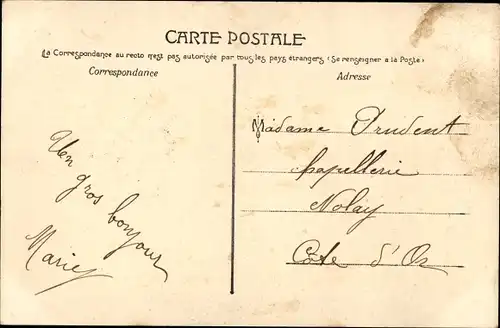 CARTE POSTALE
La Correspondance au recto n'est pas autorisée par tous les pays étrangers (Se renseigner a la Poste)
Correspondance
Adresse
Un
gros
bonjour
Marie
Madame Prudent
chapellerie
Nolay
Côte d'Or